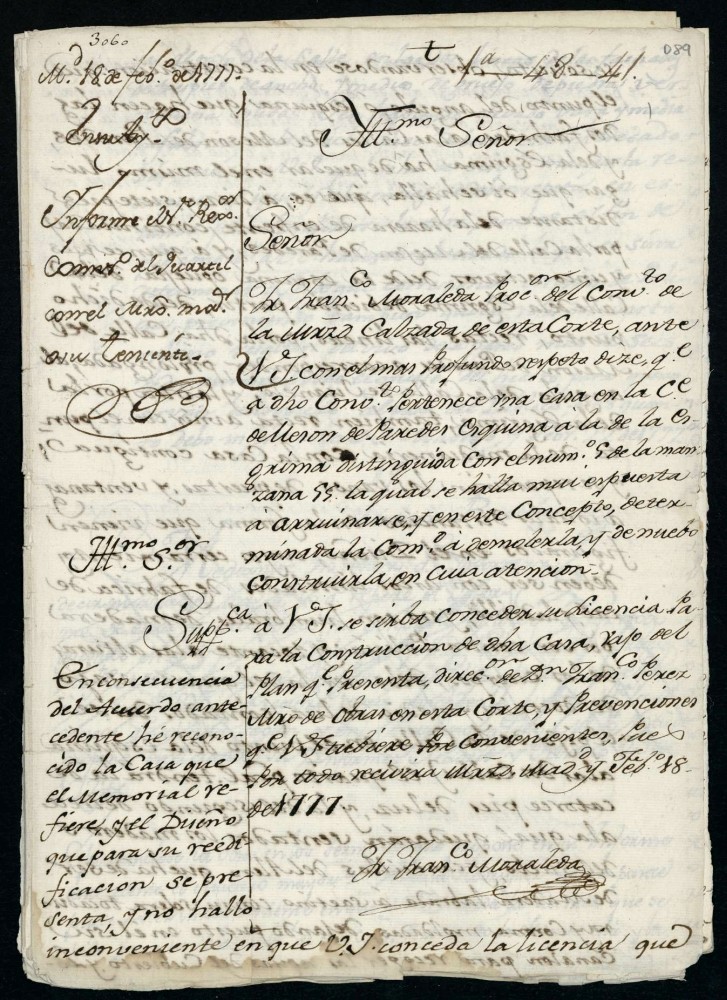 3060
089
t
1ª 48-41.
M.d 18 de feb.o de 1777.
En su Ay.to
Informe el S.r Rex.or
Comis.o del Quartel
con el Mro. mor
o su Teniente.
Ill.mo Señor
Señor
Fr Fran.co Moraleda Proc.or del Conv.to de
la Mrzd Calzada de esta Corte, ante
V.I con el mas profundo respeto dize, q.e
a dho Conv.to Pertenece una Casa en la C.e
de Meson de Paredes esquina à la de la Es-
grima distinguida con el num.o 5 de la man-
zana 55. la qual se halla mui expuesta
à arruinarse, y en este Concepto, deter-
minada la Com.d à demolerla, y de nuebo
construirla, en cuia atencion.
Ill.mo S.or
Supp.ca à V.I. se sirba conceder su Licencia Pa-
ra la Construccion de dha Casa, vajo del
Plan q.e Presenta, direc.on de D.n Fran.co Perez
Mro de Obras en esta Corte, y Prevenciones
q.e V.I tubiere por Convenientes, Pues
Por todo recivira Mrzd. Mad.d y Feb.o 18
de 1777
Fr Fran.co Moraleda
En consecuencia
del Acuerdo ante-
cedente hé recono-
cido la Casa que
el Memorial re-
fiere, y el Diseño
que para su reedi-
ficacion se pre-
senta, y no hallo
inconveniente en que V.I. conceda la licencia que